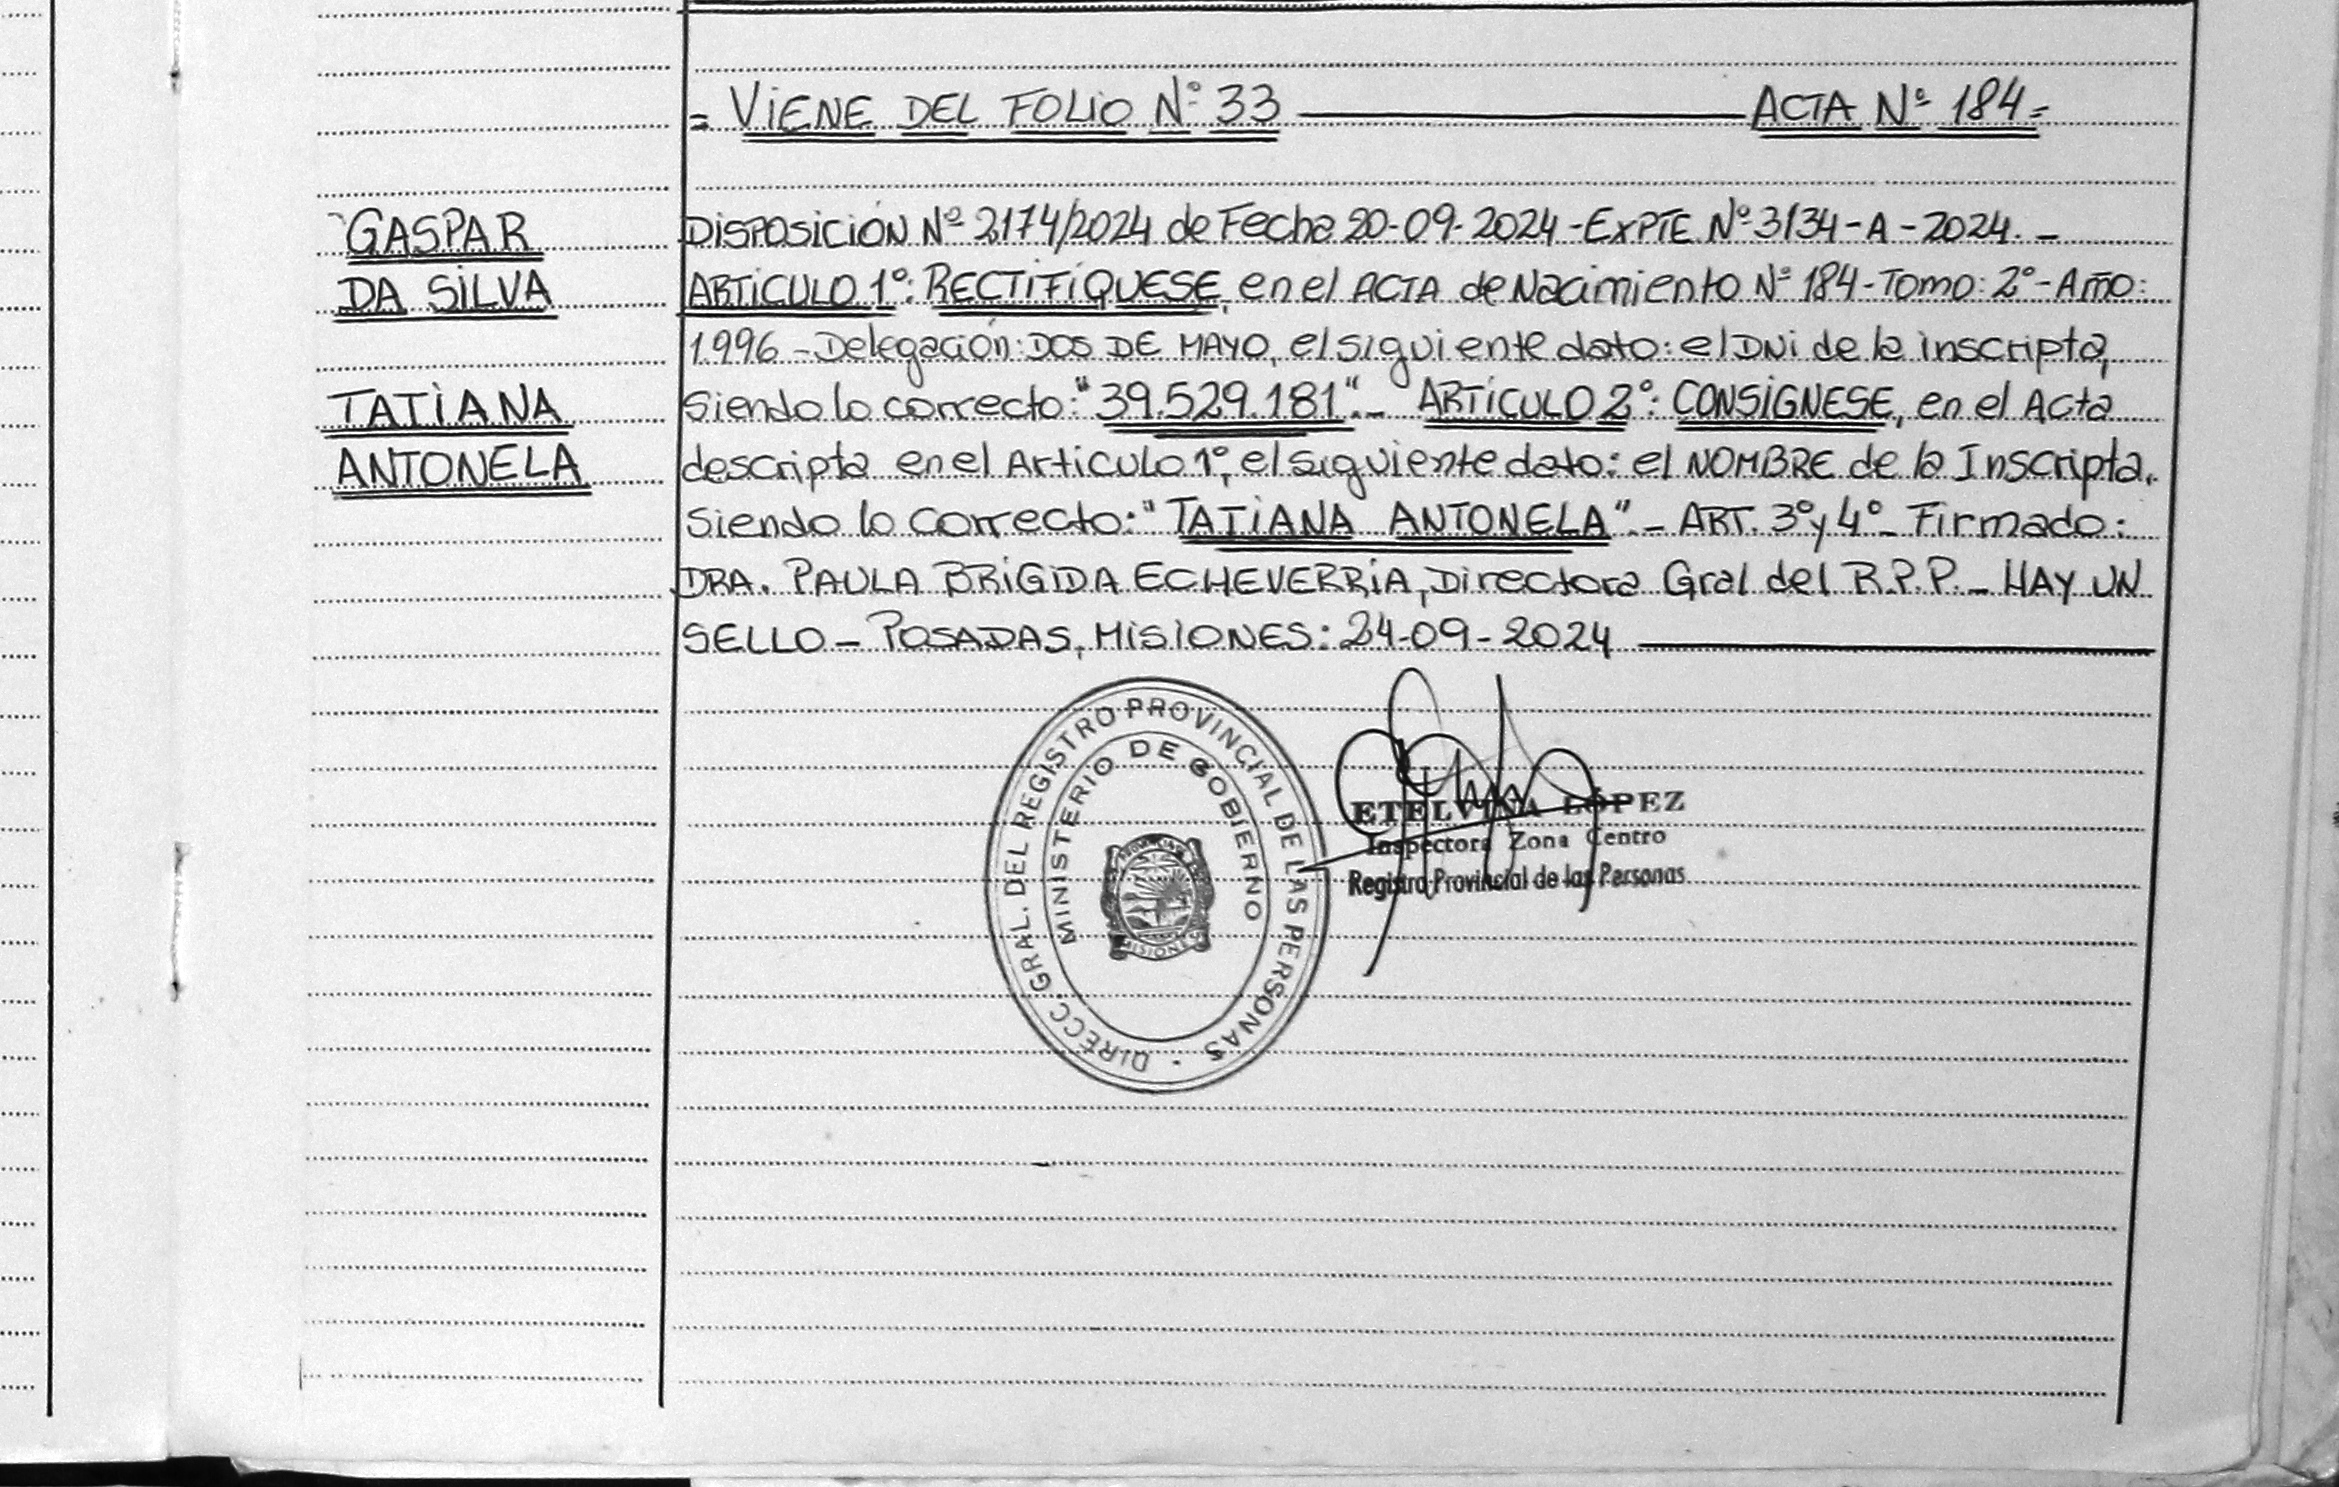 = VIENE DEL FOLIO Nº 33 ACTA Nº 184 =
GASPAR
DA SILVA
TATIANA
ANTONELA
DISPOSICIÓN Nº 2174/2024 de Fecha 20-09-2024 - EXPTE Nº 3134-A-2024. -
ARTICULO 1º: RECTIFIQUESE, en el ACTA de Nacimiento Nº 184 - Tomo: 2º - Año:
1996 - Delegación: DOS DE MAYO, el siguiente dato: el DNI de la inscripta,
siendo lo correcto: "39.529.181". - ARTÍCULO 2º: CONSÍGNESE, en el Acta
descripta en el Articulo 1º, el siguiente dato: el NOMBRE de la Inscripta.
siendo lo correcto: "TATIANA ANTONELA". - ART. 3º y 4º - Firmado:
DRA. PAULA BRIGIDA ECHEVERRIA, Directora Gral del R.P.P. - HAY UN
SELLO - POSADAS, MISIONES: 24-09-2024
DIRECC. GRAL. DEL REGISTRO PROVINCIAL DE LAS PERSONAS
MINISTERIO DE GOBIERNO
MISIONES
ETELVINA LÓPEZ
Inspectora Zona Centro
Registro Provincial de las Personas